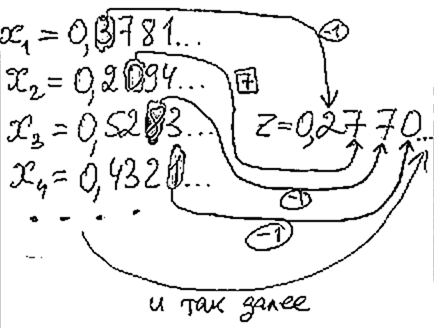 x₁ = 0,3781...
x₂ = 0,2094...
x₃ = 0,5283...
x₄ = 0,4321...
. . . .
-1
7
z = 0,2770...
-1
-1
и так далее